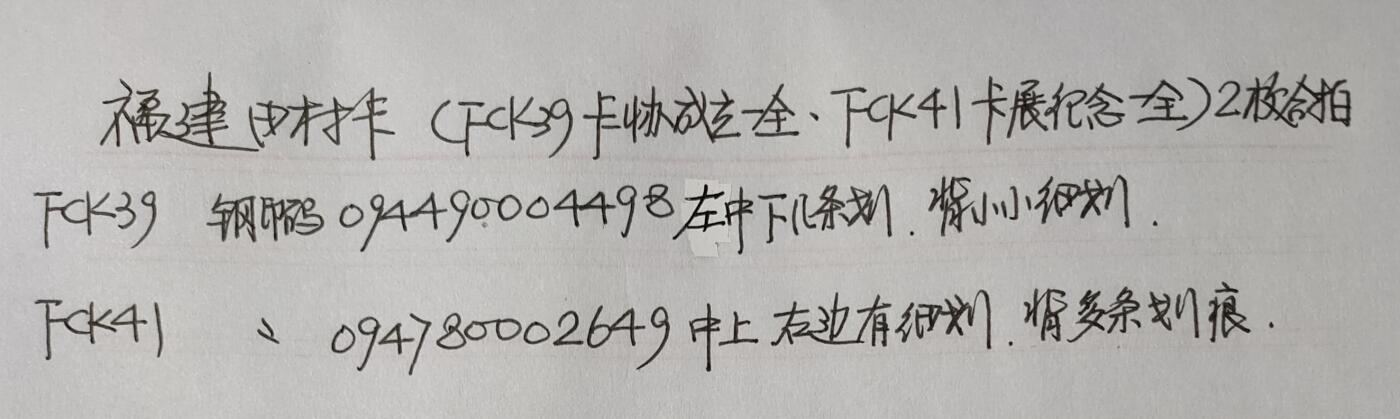 福建田村卡（FCK39卡协成立一全、FCK41卡展纪念一全）2枚合拍
FCK39 钢印码094490004498左中下几条划．背小小细划．
FCK41 〃 094780002649中上右边有细划．背多条划痕．